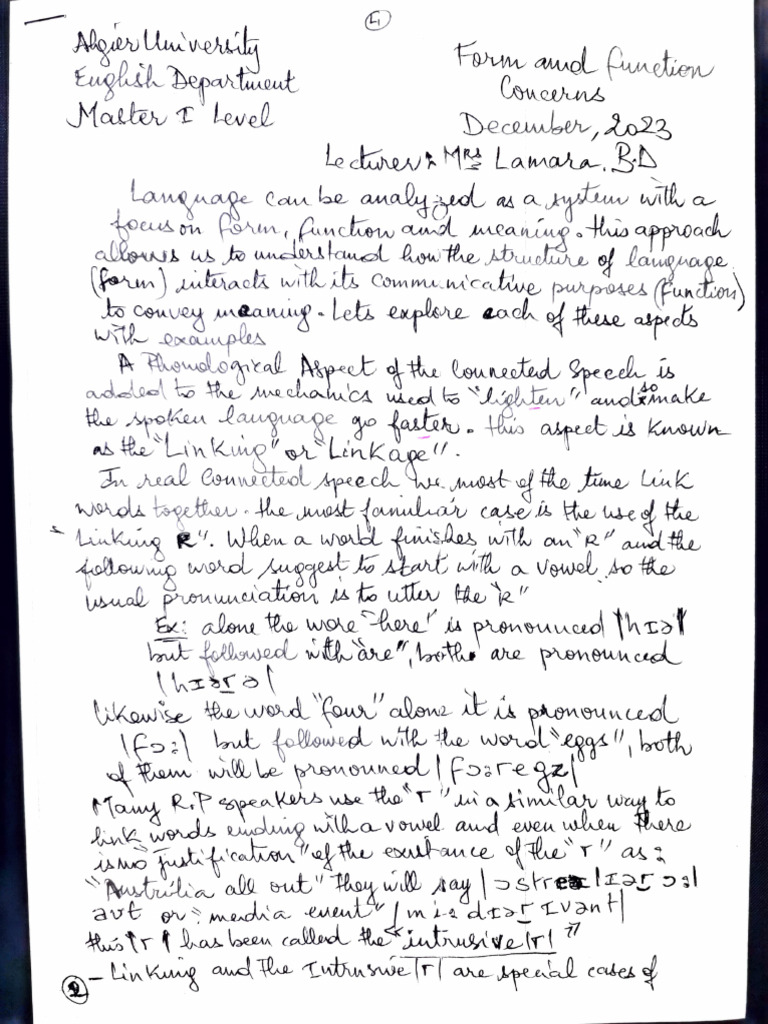 4
Algier University
English Department
Master I Level
Form and function
Concerns
December, 2023
Lecturer: Mrs Lamara. B.D
Language can be analyzed as a system with a
focus on form, function and meaning. this approach
allowes us to understand how the structure of language
(form) interacts with its communicative purposes (function)
to convey meaning. Lets explore each of these aspects
with examples
A Phonological Aspect of the Connected Speech is
added to the mechanics used to "lighten" and so make
the spoken language go faster. this aspect is known
as the "Linking" or "Linkage".
In real Connected speech we most of the time Link
words together. the most familiar case is the use of the
"Linking R". When a world finishes with an "R" and the
following word suggest to start with a vowel, so the
usual pronunciation is to utter the "R"
Ex: alone the wore "here" is pronounced |hɪə|
but followed with "are", both are pronounced
|hɪərə|
likewise the word "four" alone it is pronounced
|fɔ:| but followed with the word "eggs", both
of them will be pronouned |fɔ:regz|
Many R.P speakers use the "r" in a similar way to
link words ending with a vowel and even when there
is no "justification" of the existance of the "r" as:
"Austrilia all out" they will say |ɔstreɪlɪər ɔ:l
aʊt or "media event" |mi:dɪər ɪvent|
this |r| has been called the "intrusive |r|"
2 - Linking and the Intrusive |r| are special cases of